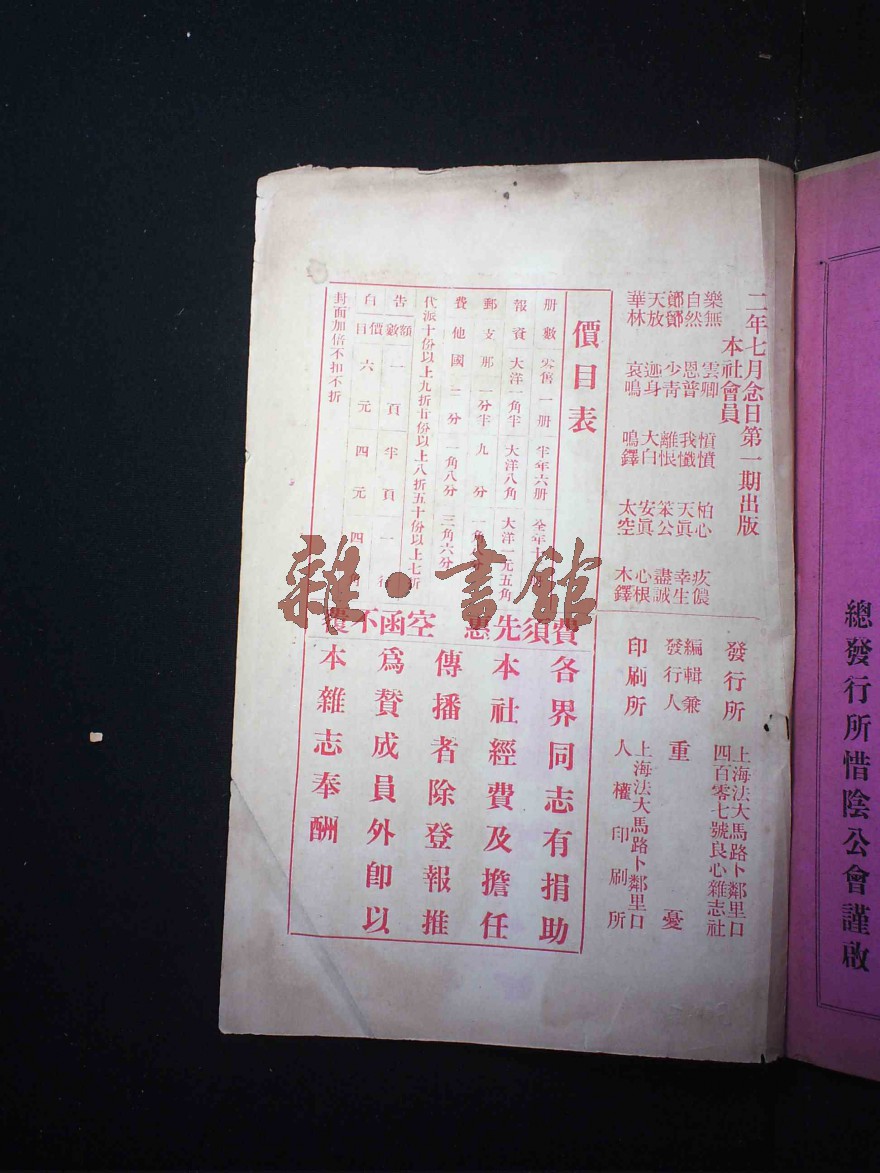 二年七月念日第一期出版
本社會員
樂無 雲卿 憤憤 柏心 疚儂
自然 恩普 我懺 天眞 幸生
鄮鄮 少靑 維恨 笨公 盡誠
天放 迦身 大白 安眞 心根
華林 哀鳴 鳴鐸 太空 木鐸
發行所 上海法大馬路卜鄰里口
四百零七號良心雜志社
編輯兼
發行人 重憂
印刷所 上海法大馬路卜鄰里口
人權印刷所
價目表
册數 零售一册 半年六册 全年十
報資 大洋一角半 大洋八角 大洋一元五角
郵 支那 一分半 九分 一角
費 他國 三分 一角八分 三角六分
代派十份以上九折廿份以上八折五十份以上七折
告 額數 一頁 半頁 一行
白 價目 六元 四元 四
封面加倍不扣不折
費須先惠 空函不覆
各界同志有捐助
本社經費及擔任
傳播者除登報推
爲贊成員外卽以
本雜志奉酬
雜·書館
總發行所惜陰公會謹啟